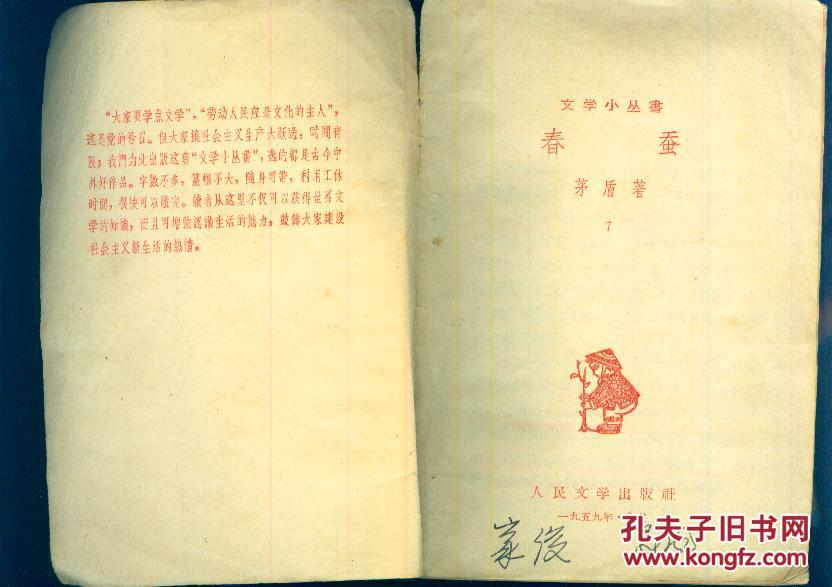 “大家要学点文学”，“劳动人民应是文化的主人”，
这是党的号召。但大家搞社会主义生产大跃进，时間有
限；我們为此出版这套“文学小丛書”，选的都是古今中
外好作品。字数不多，篇幅不大，随身可带，利用工休
时間，很快可以讀完。讀者从这里不仅可以获得世界文
学的知識，而且可增強認識生活的能力，鼓舞大家建設
社会主义新生活的热情。
文学小丛書
春 蚕
茅盾著
7
人民文学出版社
一九五九年·
家俊
孔夫子旧书网
www.kongfz.com